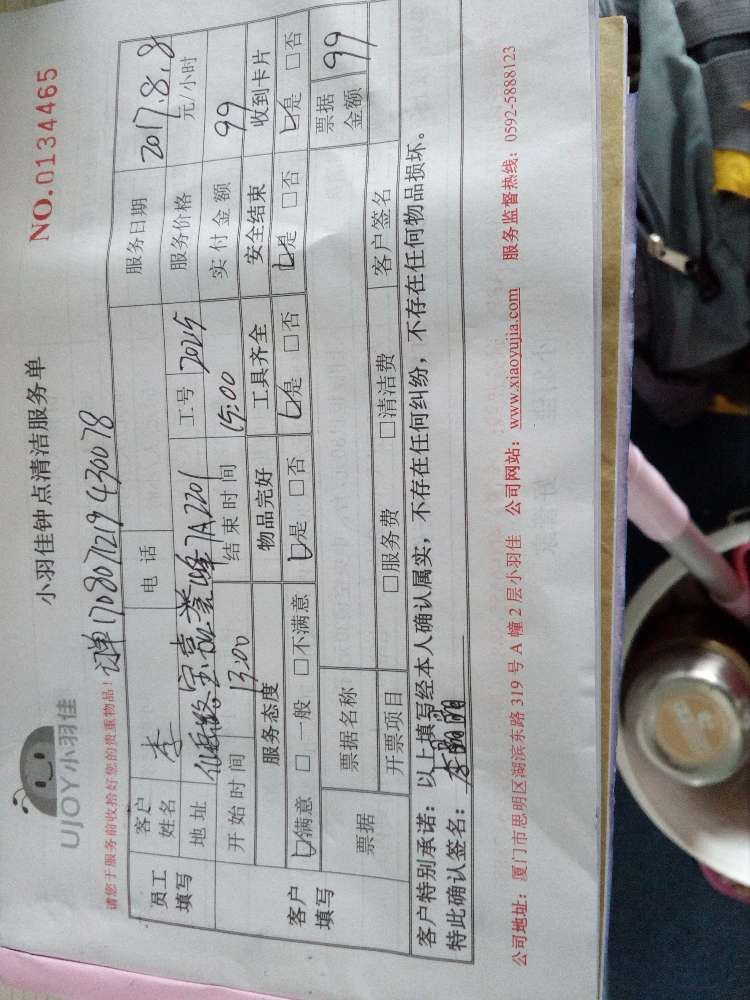 UJOY小羽佳
小羽佳钟点清洁服务单
NO.0134465
请您于服务前收拾好您的贵重物品！
订单1708071219430078
员工填写
客户姓名 李 电话 服务日期 2017.8.8
地址 宝嘉誉峰7A2201 工号 2025 服务价格 元/小时
开始时间 13:00 结束时间 15:00 实付金额 99
客户填写
服务态度 物品完好 工具齐全 安全结束 收到卡片
☑满意 □一般 □不满意 ☑是 □否 ☑是 □否 ☑是 □否 ☑是 □否
票据 票据名称 票据金额 99
开票项目 □服务费 □清洁费 客户签名
客户特别承诺：以上填写经本人确认属实，不存在任何纠纷，不存在任何物品损坏。
特此确认签名：
公司地址：厦门市思明区湖滨东路 319 号 A 幢 2 层小羽佳 公司网站：www.xiaoyujia.com 服务监督热线：0592-5888123